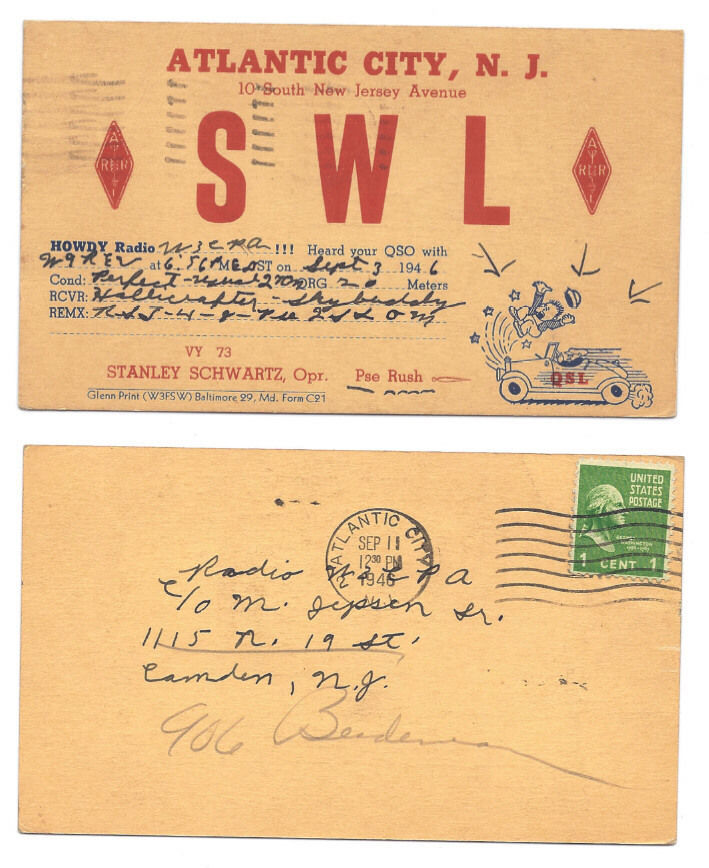 ATLANTIC CITY, N. J.
10 South New Jersey Avenue
SWL
A
RRL
HOWDY Radio W3CPA !!! Heard your QSO with
W9REV at 6:56 PM EDST on Sept 3 1946
Cond: Perfect - usual QRM QRG 20 Meters
RCVR: Hallicrafter - Sky buddy
REMX: RST-4-8- Pse QSL OM
VY 73
STANLEY SCHWARTZ, Opr. Pse Rush
QSL
Glenn Print (W3FSW) Baltimore 29, Md. Form C21
UNITED
STATES
POSTAGE
GEORGE
WASHINGTON
1 CENT 1
ATLANTIC CITY
SEP 11
12 30 PM
1946
N.J.
Radio W3CPA
c/o M. Jepsen Sr.
1115 N. 19 St.
Camden, N.J.
906